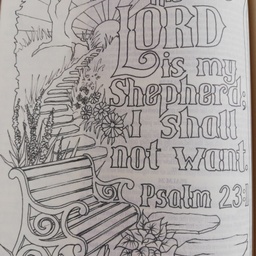 The
LORD
is my
Shepherd;
I shall
not want.
Psalm 23:1